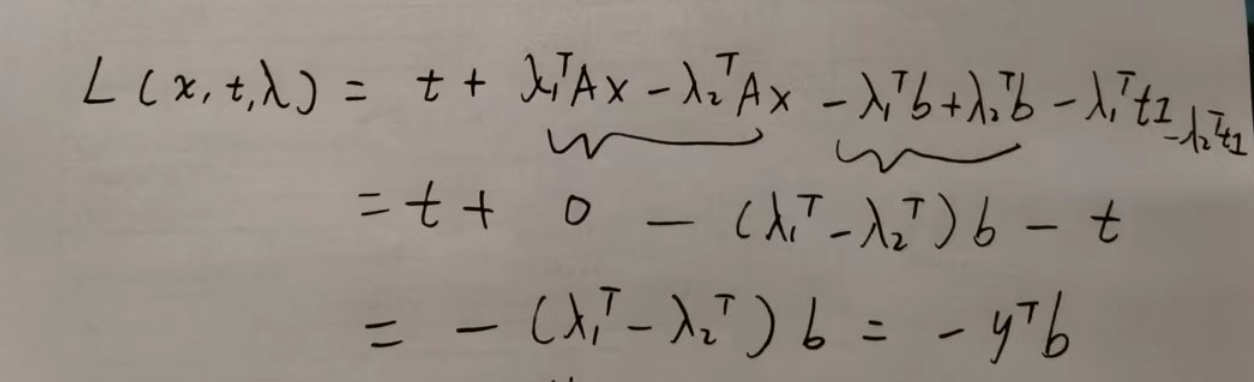 L(x,t,λ) = t + λ₁ᵀAx − λ₂ᵀAx − λ₁ᵀb + λ₂ᵀb − λ₁ᵀt1 − λ₂ᵀt1
= t + 0 − (λ₁ᵀ − λ₂ᵀ)b − t
= − (λ₁ᵀ − λ₂ᵀ) b = − yᵀb